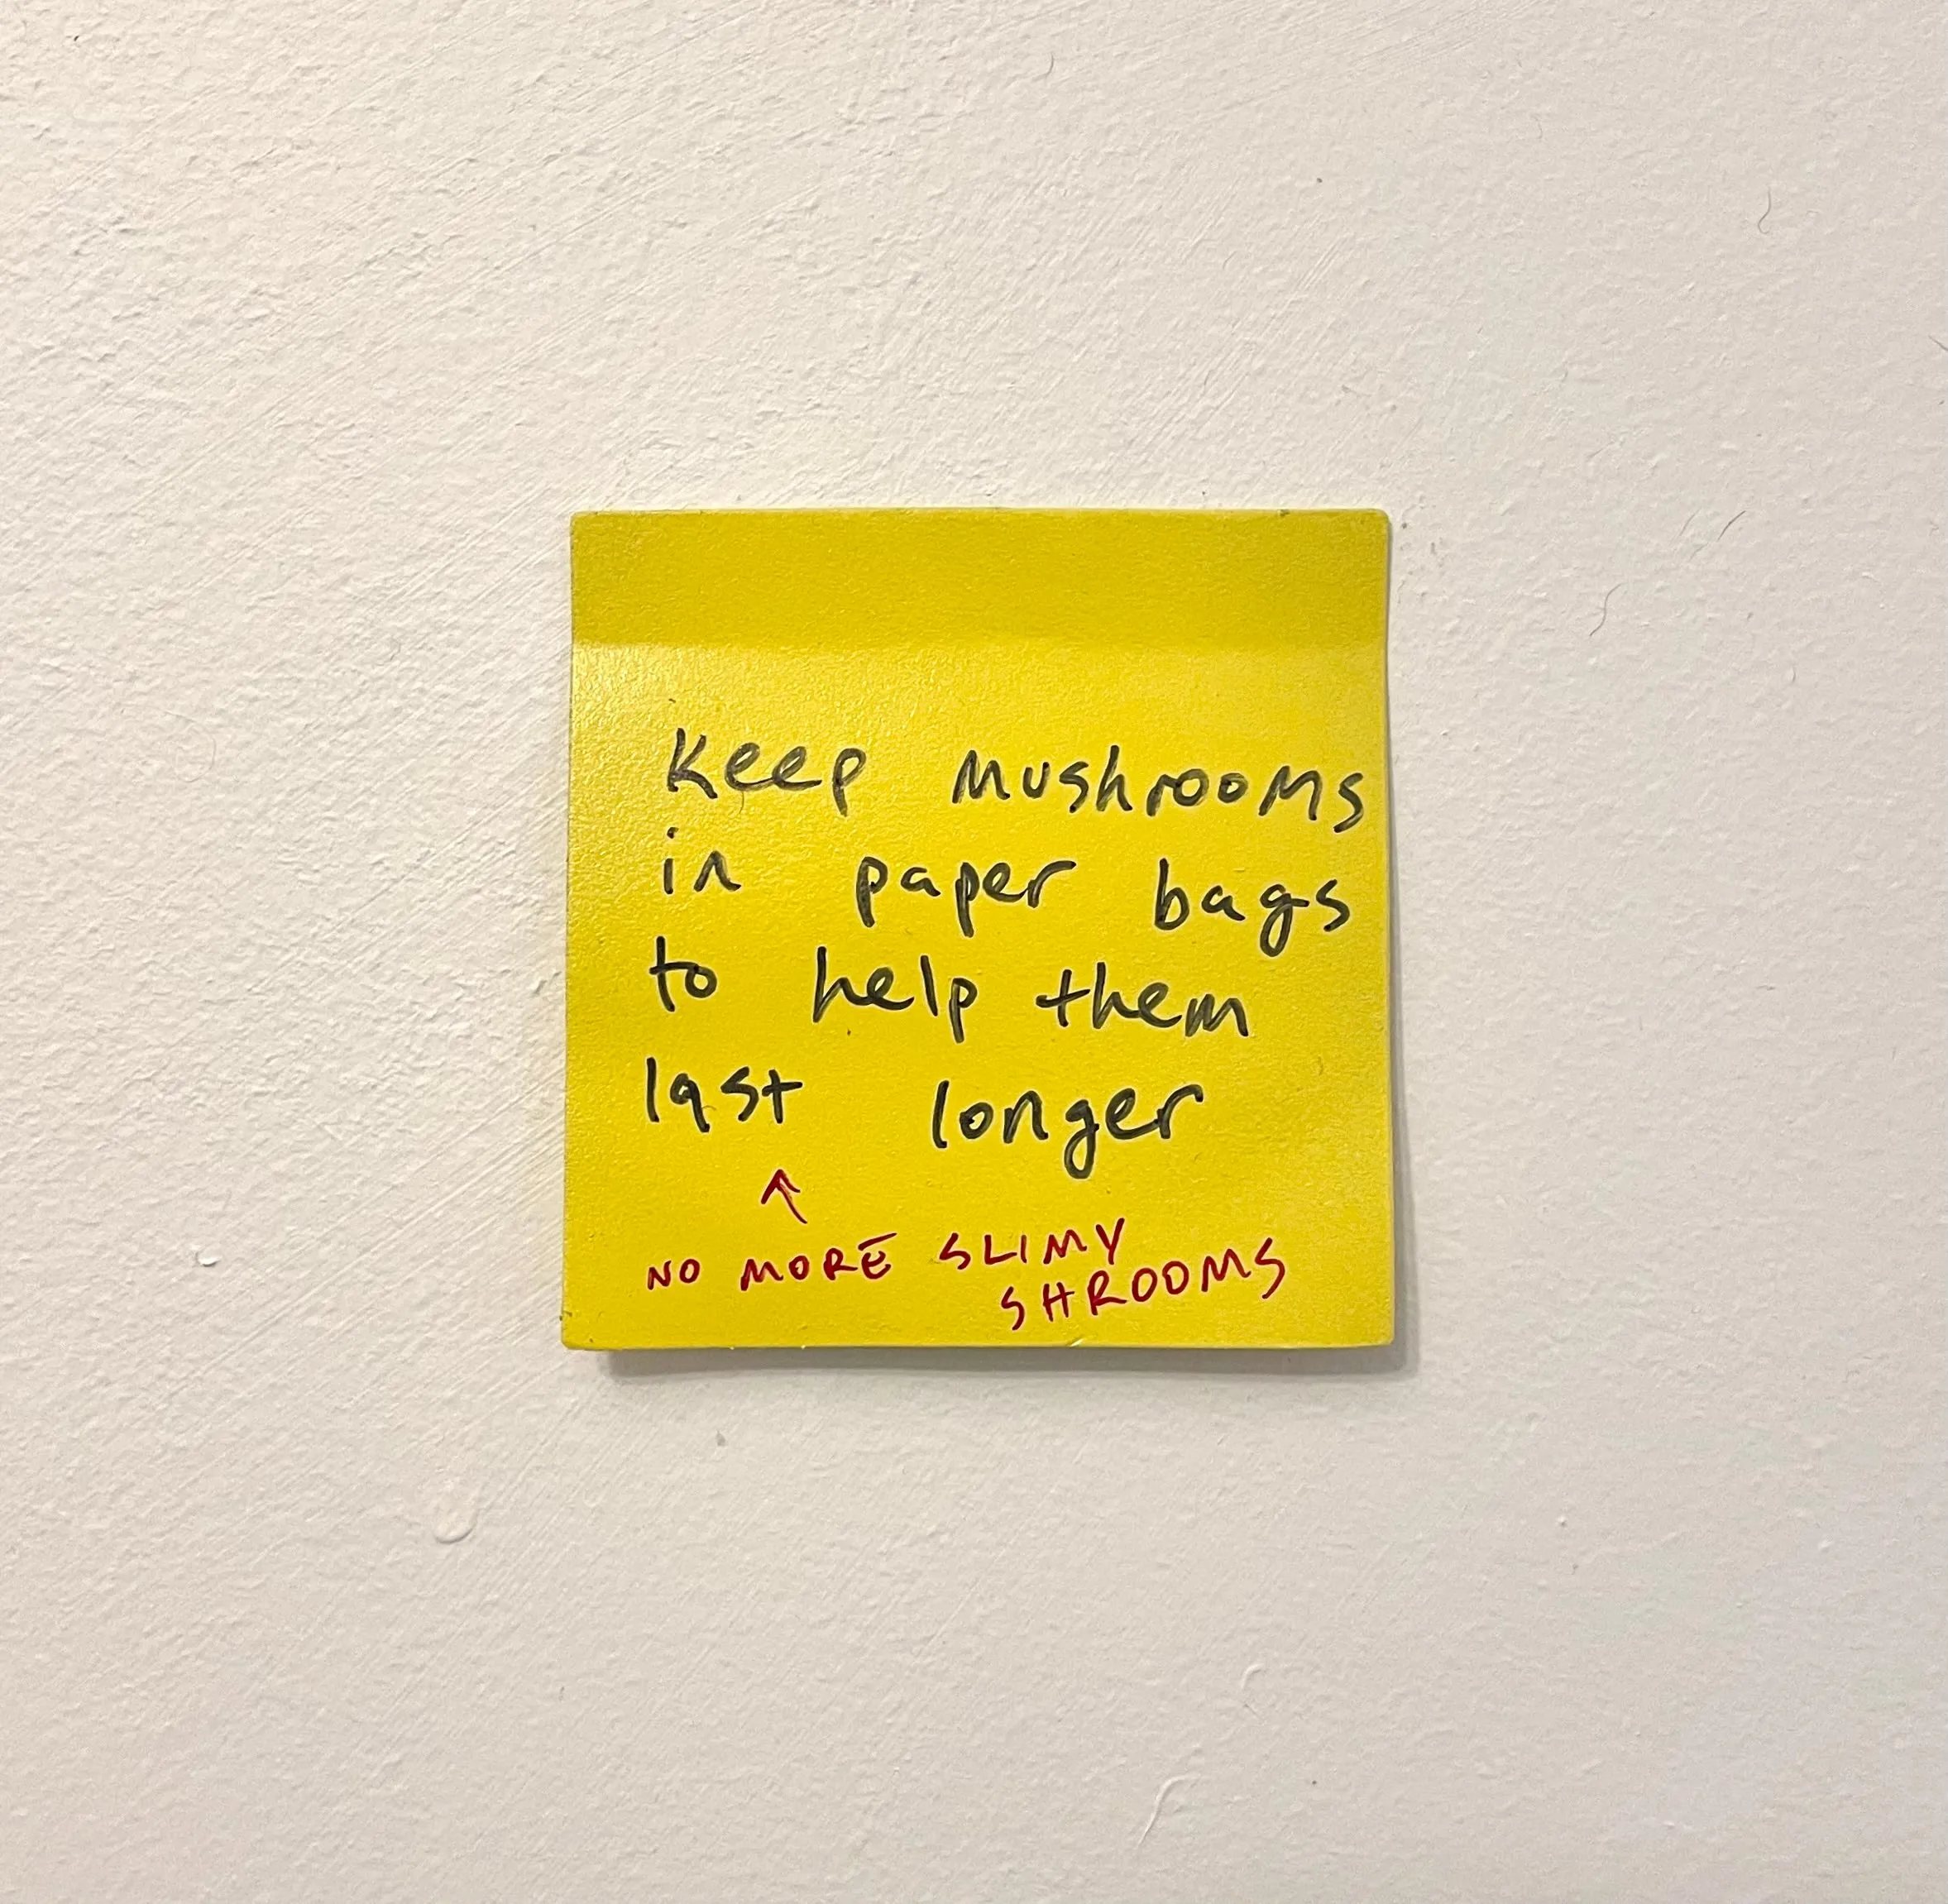 Keep mushrooms
in paper bags
to help them
last longer
↑
NO MORE SLIMY
SHROOMS